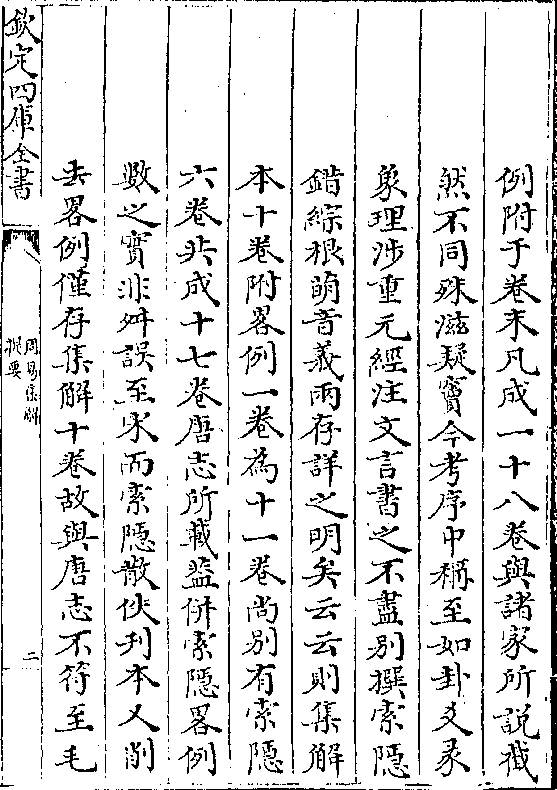 例附于卷末凡成一十八卷與諸家所說截
然不同殊滋疑竇今考序中稱至如卦爻彖
象理涉重元經注文言書之不盡别撰索隱
錯綜根萌音義兩存詳之明矣云云則集解
本十卷附畧例一卷為十一卷尚别有索隱
六卷共成十七卷唐志所載葢併索隱畧例
數之實非舛誤至宋而索隱散佚刋本又削
去畧例僅存集解十卷故與唐志不符至毛
欽定四庫全書
周易集解
提要
二